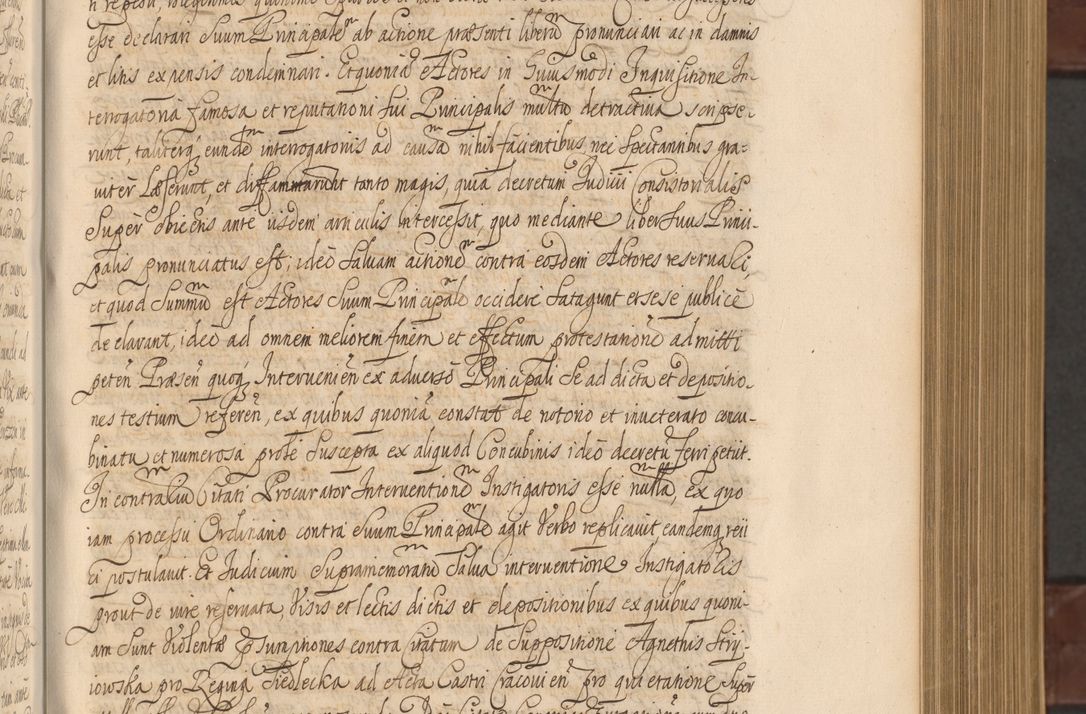 esse declarari Suum Principalē ab actione præsenti liberū pronunciari ac in damnis
et litis expensis condemnari. Et quoniā Actores in Huiusmodi Inquisitione In-
terrogatoria famosa et reputationi sui Principalis multū detractiva scripse-
runt, taliterq; eundē interrogatoriis ad causā nihil facientibus, nec spectantibus gra=
viter Læserunt, et diffammarunt tanto magis, quia decretum Judicii Consistorialis
Super obiectis ante iisdem articulis Intercessit, quo mediante liber Suus Princi-
palis pronunciatus est; ideo Salvam actionē contra eosdem Actores reservari,
et quod Summū est Actores Suum Principalē occidere Satagunt et sese publice
declarant, ideo ad omnem meliorem finem et effectum protestationē admitti
peteñ Præseñ quoq; Intervenieñ ex adverso Principali Se ad dicta et depositio-
nes testium refereñ, ex quibus quoniā constat de notorio et inveterato concu-
binatu et numerosa prole Suscepta ex aliquod Concubinis ideo decretū ferri petiit.
In contrariū Citati Procurator Interventionē Instigatoris esse nullā, ex quo
iam processu Ordinario contra Suum Principalē agit Verbo replicavit eandemq; reii
ci postulavit. Et Judicium Supramemoratū Salva interventione Instigatoris
prout de iure reservata Visis et lectis dictis et depositionibus ex quibus quoni-
am Sunt Violentæ Præsumptiones contra Citatum de Suppositione Agnethis Stry-
iowska pro Regina Siedlecka ad Acta Castri Cracovieñ pro quietatione Super